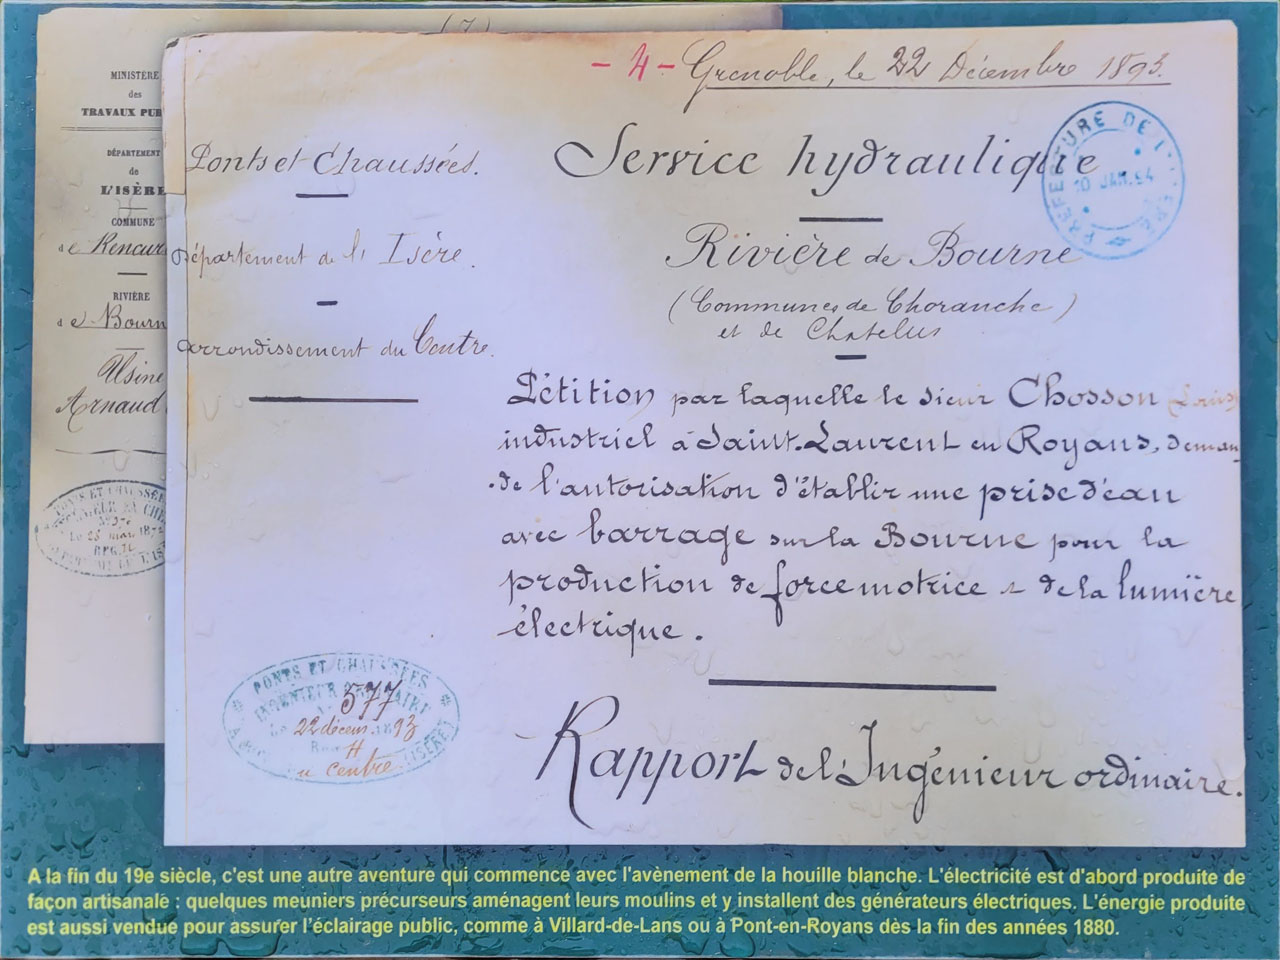 (7)
MINISTÈRE
des
TRAVAUX PUB
DÉPARTEMENT
de
L'ISÈRE
COMMUNE
de Rencur
RIVIÈRE
de Bourn
Usine
Arnaud
PONTS ET CHAUSSÉE
Le 25 mai 187
- 4 - Grenoble, le 22 Décembre 1893.
Ponts et Chaussées.
Département de l'Isère.
Arrondissement du Centre.
Service hydraulique
PREFECTURE DE L'ISERE
10 JAN. 94
Rivière de Bourne
(Communes de Choranche)
et de Chatelus
Pétition par laquelle le sieur Chosson Louis,
industriel à Saint-Laurent en Royans, deman
-de l'autorisation d'établir une prise d'eau
avec barrage sur la Bourne pour la
production de force motrice & de la lumière
électrique.
Rapport de l'Ingénieur ordinaire.
PONTS ET CHAUSSÉES
INGENIEUR ORDINAIRE
577
Le 22 décem. 1893
H
centre
(ISÈRE)
A la fin du 19e siècle, c'est une autre aventure qui commence avec l'avènement de la houille blanche. L'électricité est d'abord produite de
façon artisanale : quelques meuniers précurseurs aménagent leurs moulins et y installent des générateurs électriques. L'énergie produite
est aussi vendue pour assurer l'éclairage public, comme à Villard-de-Lans ou à Pont-en-Royans dès la fin des années 1880.